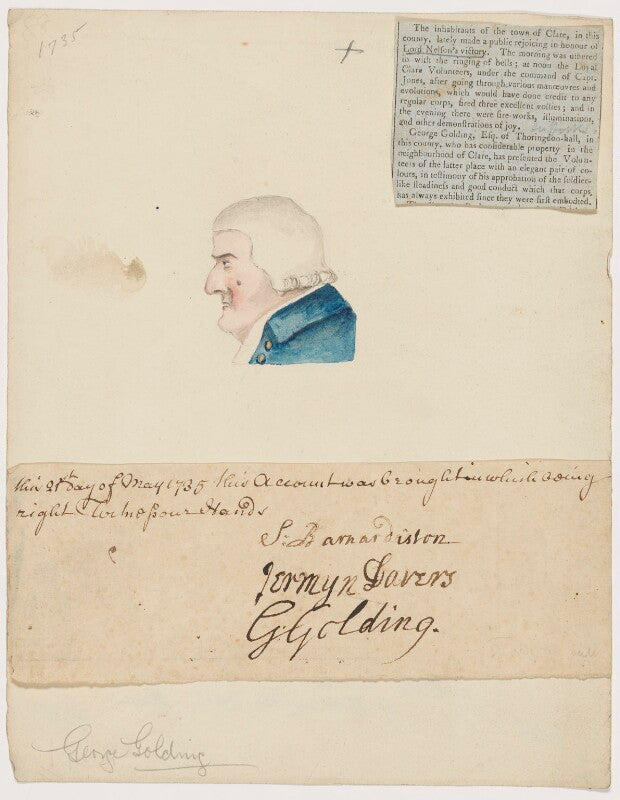 1735
The inhabitants of the town of Clare, in this
county, lately made a public rejoicing in honour of
Lord Nelson's victory. The morning was ushered
in with the ringing of bells; at noon the Loyal
Clare Volunteers, under the command of Capt.
Jones, after going through various manœuvres and
evolutions, which would have done credit to any
regular corps, fired three excellent vollies; and in
the evening there were fire-works, illuminations,
and other demonstrations of joy.
George Golding, Esq. of Thoringdon-hall, in
this county, who has considerable property in the
neighbourhood of Clare, has presented the Volun-
teers of the latter place with an elegant pair of co-
lours, in testimony of his approbation of the soldier-
like steadiness and good conduct which that corps
has always exhibited since they were first embodied.
this 21th Day of May 1735 this Account was brought in which being
right Witness our Hands
S: Barnardiston
Jermyn Davers
G Golding.
George Golding